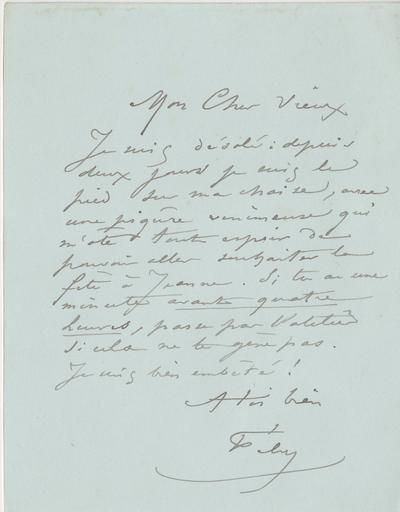 Mon Cher Vieux
Je suis désolé : depuis
deux jours je suis le
pied sur ma chaise, avec
une piqûre venimeuse qui
m'ôte tout espoir de
pouvoir aller souhaiter la
fête à Jeanne. Si tu as une
minute avant quatre
heures, passe par l'atelier
si cela ne te gêne pas.
Je suis bien embêté !
A toi bien